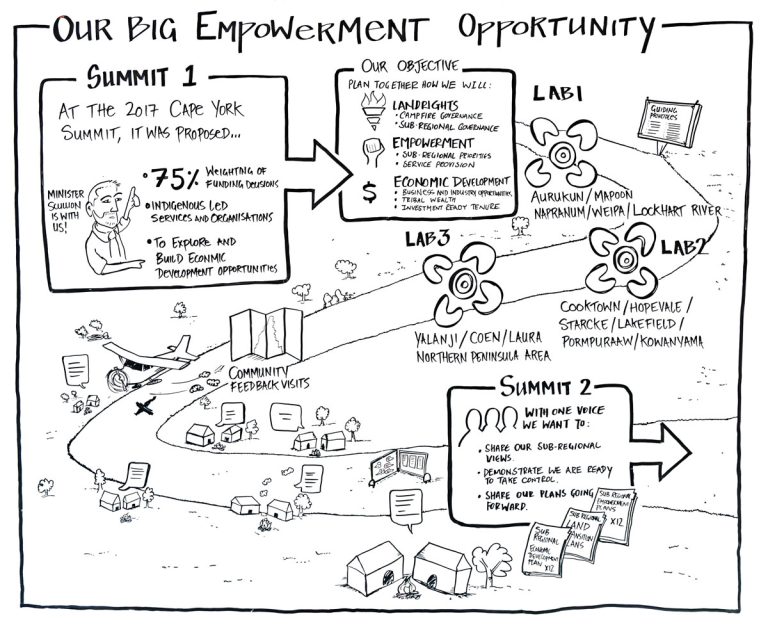 OUR BIG EMPOWERMENT OPPORTUNITY
SUMMIT 1
AT THE 2017 CAPE YORK
SUMMIT, IT WAS PROPOSED...
MINISTER
SCULLION
IS WITH
US!
• 75% WEIGHTING OF
FUNDING DECISIONS
• INDIGENOUS LED
SERVICES AND ORGANISATIONS
• TO EXPLORE AND
BUILD ECONMIC
DEVELOPMENT OPPORTUNITIES
OUR OBJECTIVE
PLAN TOGETHER HOW WE WILL:
LANDRIGHTS
• CAMPFIRE GOVERNANCE
• SUB-REGIONAL GOVERNANCE
EMPOWERMENT
• SUB-REGIONAL PRIORITIES
• SERVICE PROVISION
$ ECONOMIC DEVELOPMENT
• BUSINESS AND INDUSTRY OPPORTUNITIES
• TRIBAL WEALTH
• INVESTMENT READY TENURE
LAB1
AURUKUN/MAPOON
NAPRANUM/WEIPA/LOCKHART RIVER
GUIDING
PRINCIPLES
LAB2
COOKTOWN/HOPEVALE/
STARCKE/LAKEFIELD/
PORMPURAAW/KOWANYAMA
LAB3
YALANJI/COEN/LAURA
NORTHERN PENINSULA AREA
COMMUNITY
FEEDBACK VISITS
SUMMIT 2
WITH ONE VOICE
WE WANT TO:
• SHARE OUR SUB-REGIONAL
VIEWS.
• DEMONSTRATE WE ARE READY
TO TAKE CONTROL.
• SHARE OUR PLANS GOING
FORWARD.
SUB REGIONAL
EMPOWERMENT
PLANS
X12
SUB REGIONAL
LAND
SUB
REGIONAL
ECONOMIC
DEVELOPMENT
PLAN X12